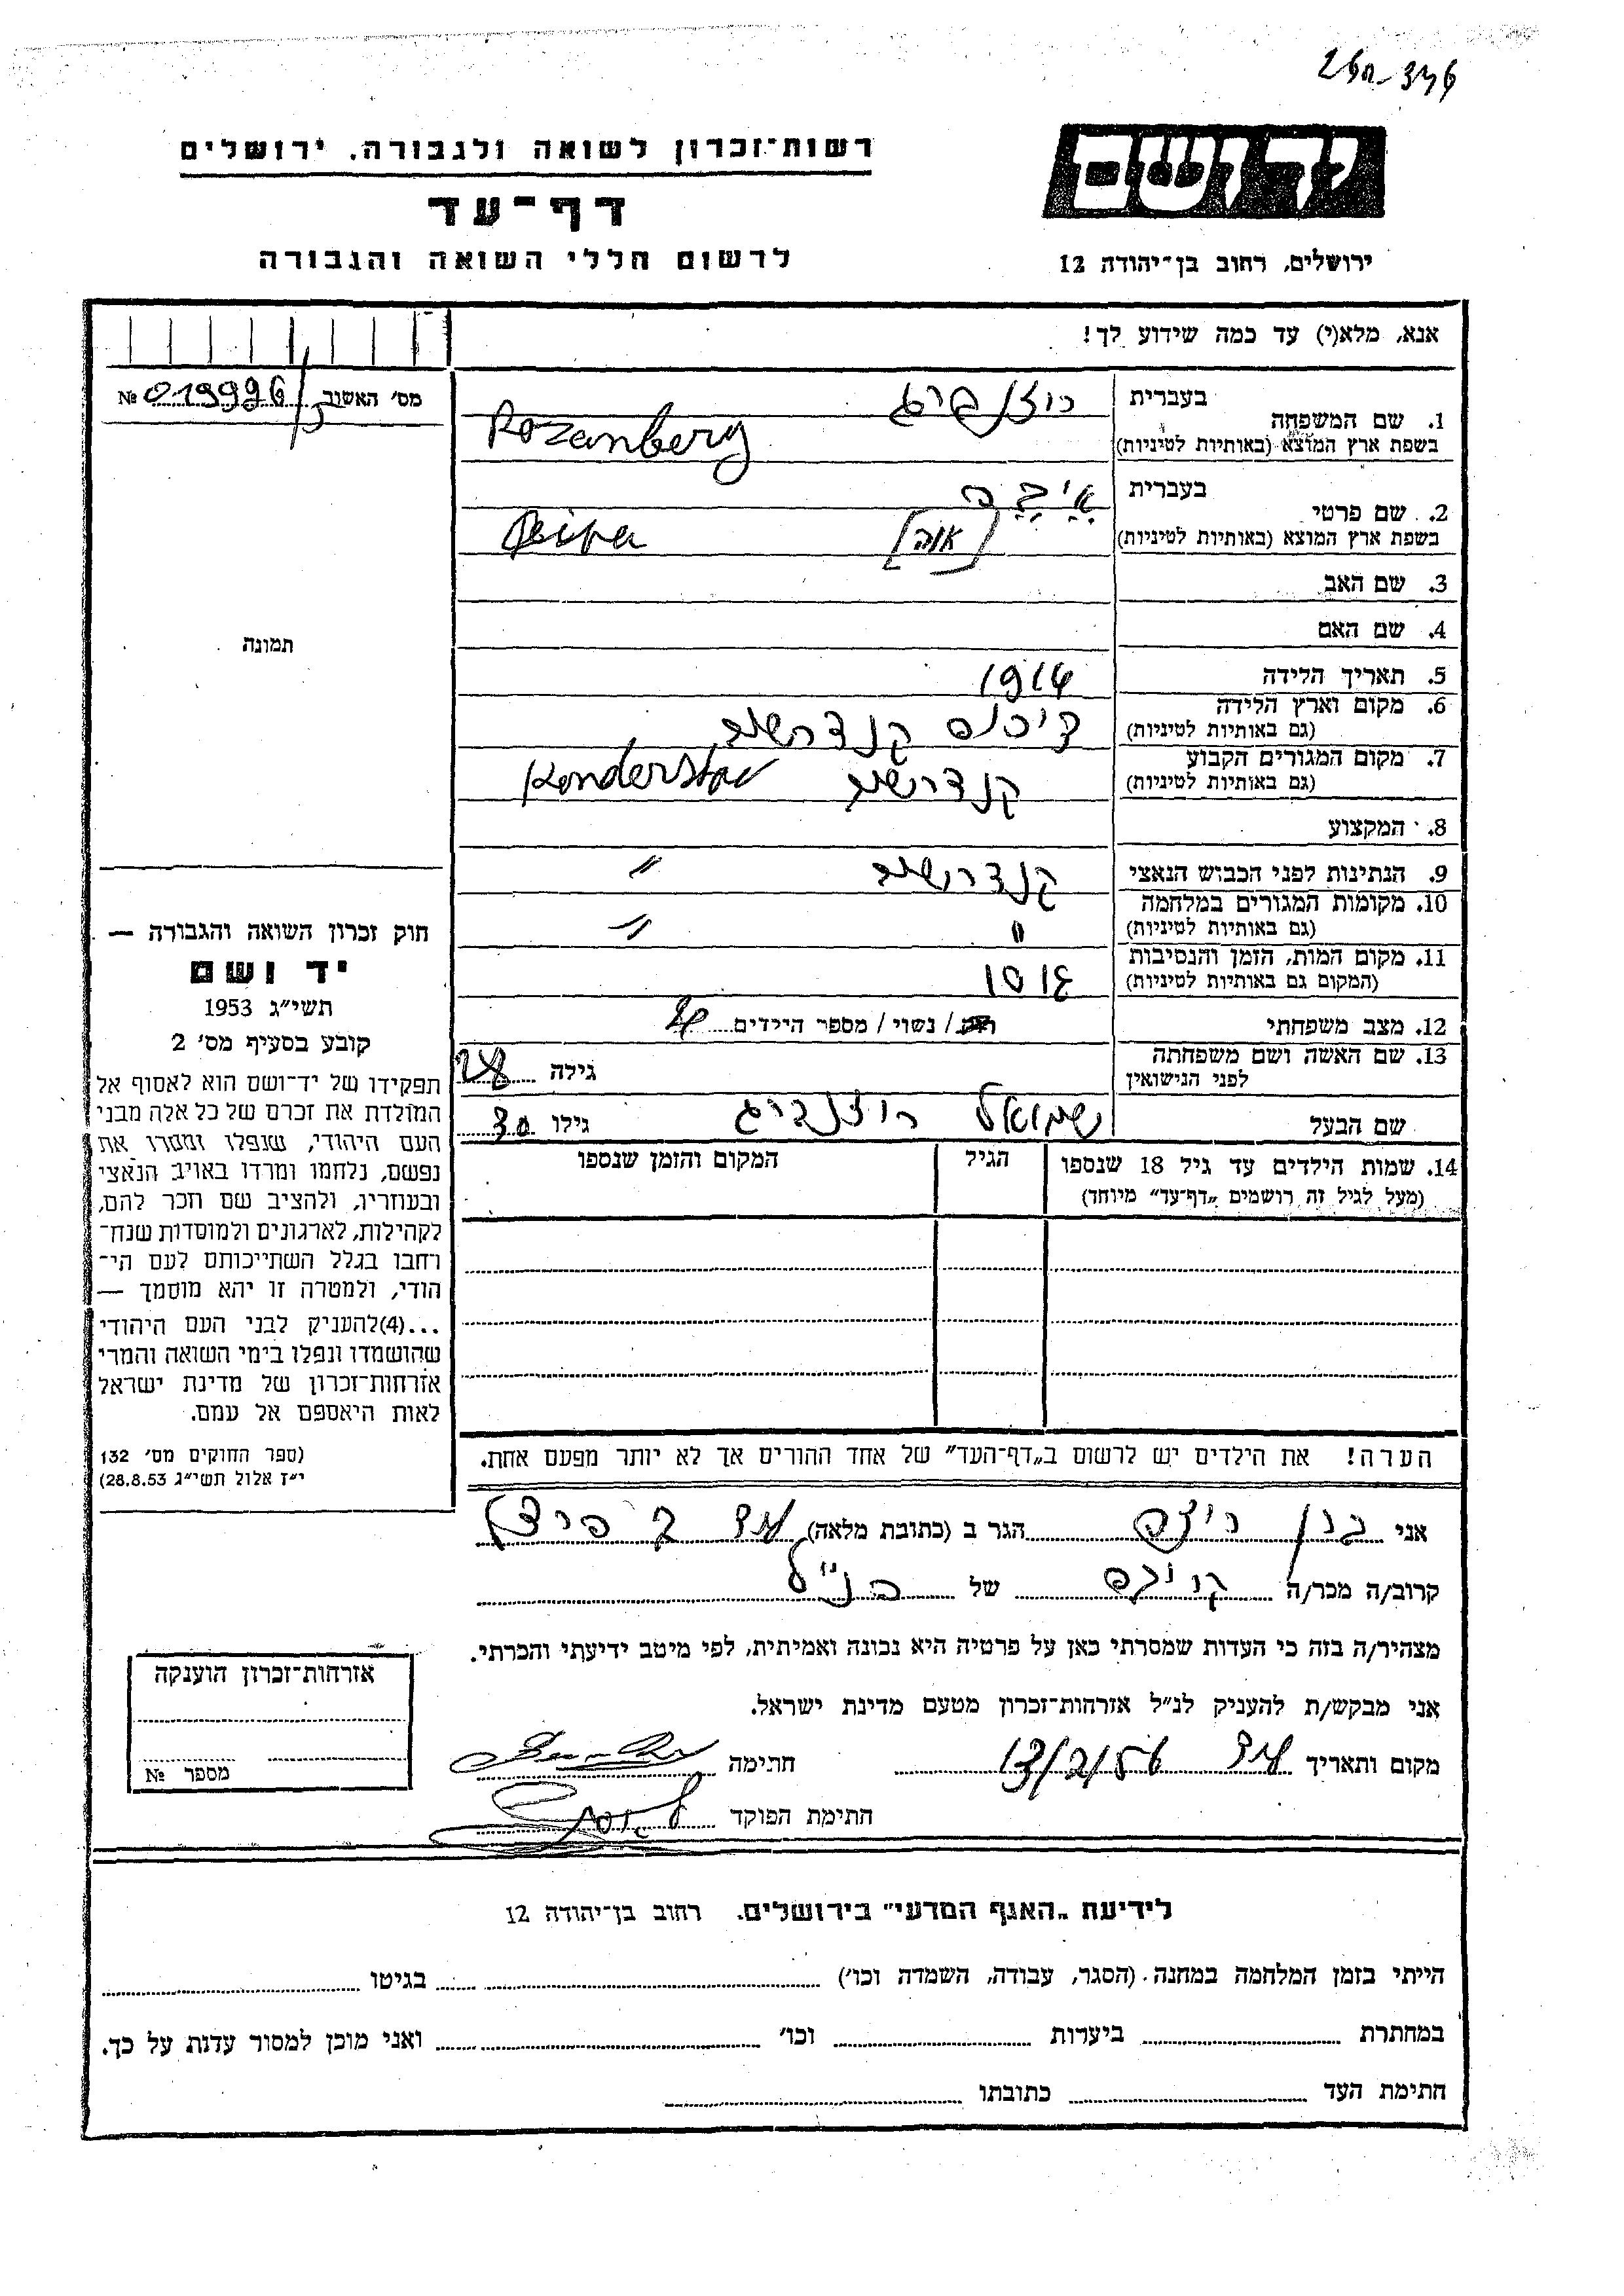 רשות־זכרון לשואה ולגבורה. ירושלים
דף־עד
לרשום חללי השואה והגבורה
יד ושם
ירושלים, רחוב בן־יהודה 12
אנא, מלא(י) עד כמה שידוע לך!
מס׳ האשור № 019996
1. שם המשפחה
בעברית רוזנברג
בשפת ארץ המוצא (באותיות לטיניות) Rozanberg
2. שם פרטי
בעברית
בשפת ארץ המוצא (באותיות לטיניות)
3. שם האב
4. שם האם
5. תאריך הלידה 1914
6. מקום וארץ הלידה
(גם באותיות לטיניות)
7. מקום המגורים הקבוע
(גם באותיות לטיניות)
8. המקצוע
9. הנתינות לפני הכבוש הנאצי
10. מקומות המגורים במלחמה
(גם באותיות לטיניות)
11. מקום המות, הזמן והנסיבות
(המקום גם באותיות לטיניות)
12. מצב משפחתי
/ נשוי / מספר הילדים
13. שם האשה ושם משפחתה
לפני הנישואין
גילה 28
שם הבעל שמואל רוזנברג גילו 30
14. שמות הילדים עד גיל 18 שנספו
(מעל לגיל זה רושמים „דף־עד״ מיוחד)
הגיל
המקום והזמן שנספו
הערה! את הילדים יש לרשום ב„דף־העד״ של אחד ההורים אך לא יותר מפעם אחת.
תמונה
חוק זכרון השואה והגבורה —
יד ושם
תשי״ג 1953
קובע בסעיף מס׳ 2
תפקידו של יד־ושם הוא לאסוף אל
המולדת את זכרם של כל אלה מבני
העם היהודי, שנפלו ומסרו את
נפשם, נלחמו ומרדו באויב הנאצי
ובעוזריו, ולהציב שם וזכר להם,
לקהילות, לארגונים ולמוסדות שנח־
רחבו בגלל השתייכותם לעם הי־
הודי, ולמטרה זו יהא מוסמך —
...(4)להעניק לבני העם היהודי
שהושמדו ונפלו בימי השואה והמרי
אזרחות־זכרון של מדינת ישראל
לאות היאספם אל עמם.
(ספר החוקים מס׳ 132
י״ז אלול תשי״ג 28.8.53)
אני הגר ב (כתובת מלאה)
קרוב/ה מכר/ה של הנ״ל
מצהיר/ה בזה כי העדות שמסרתי כאן על פרטיה היא נכונה ואמיתית, לפי מיטב ידיעתי והכרתי.
אני מבקש/ת להעניק לנ״ל אזרחות־זכרון מטעם מדינת ישראל.
מקום ותאריך 13/2/56 חתימה
חתימת הפוקד
אזרחות־זכרון הוענקה
מספר №
לידיעת „האגף המדעי״ בירושלים. רחוב בן־יהודה 12
הייתי בזמן המלחמה במחנה (הסגר, עבודה, השמדה וכו׳) בגיטו
במחתרת ביערות וכו׳ ואני מוכן למסור עדות על כך.
חתימת העד כתובתו